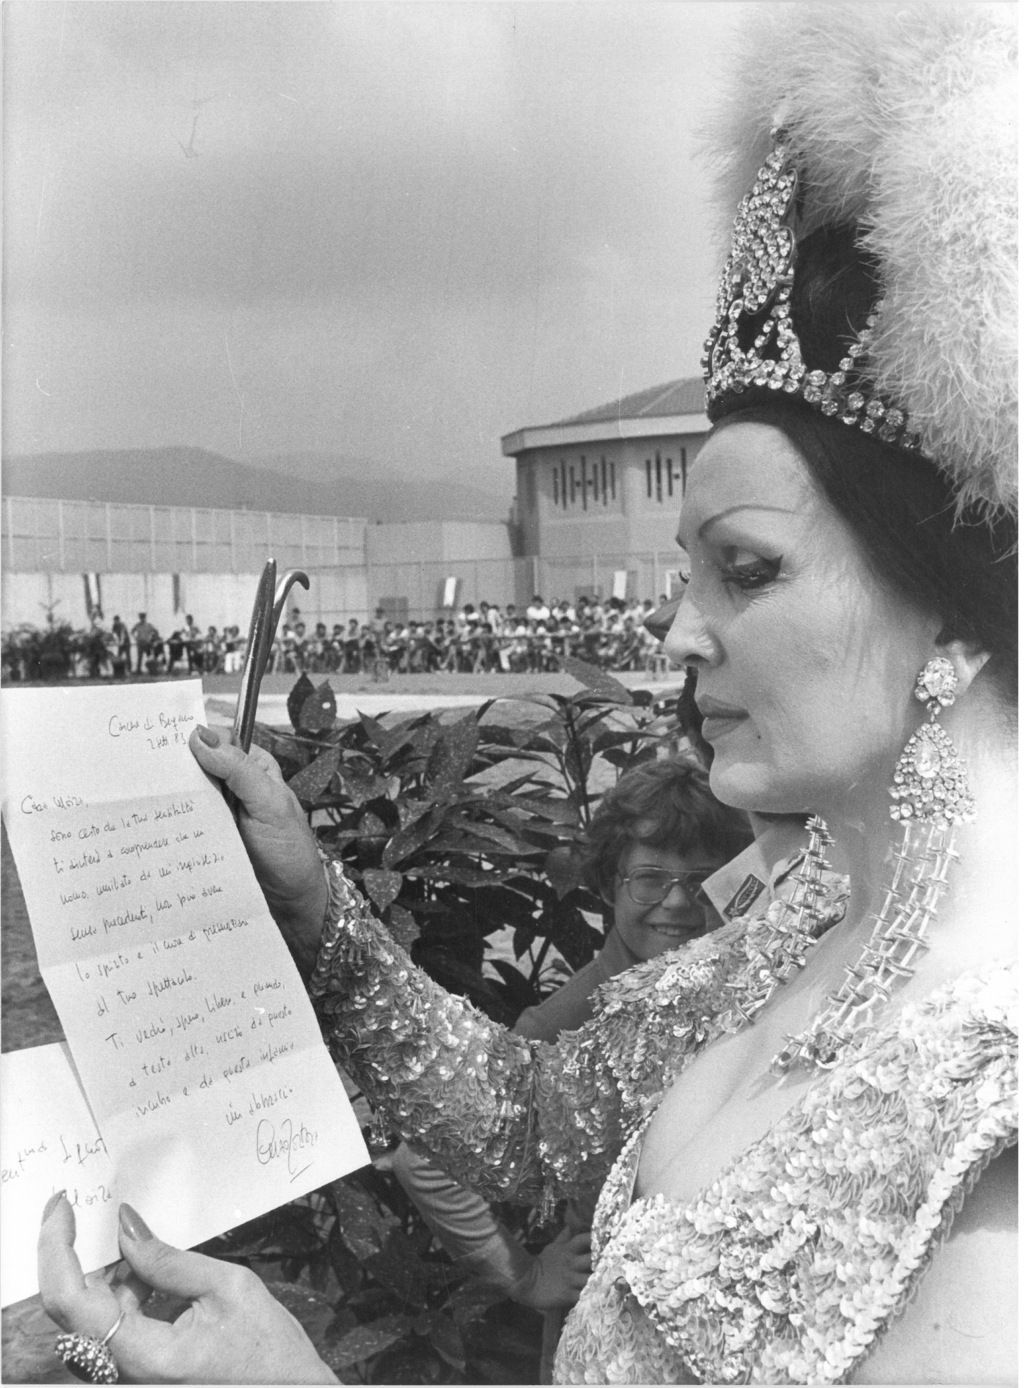 Carcere di Bergamo
2 sett 83
Caro Moira,
sono certo che la tua sensibilità
ti aiuterà a comprendere che un
uomo, umiliato da un'ingiustizia
senza precedenti, non può avere
lo spirito e il cuore di presentare
il tuo spettacolo.
Ti vedrò, spero, libero, e presto,
a testa alta, uscito da questo
incubo e da questo inferno.
Un abbraccio
Enzo Tortora